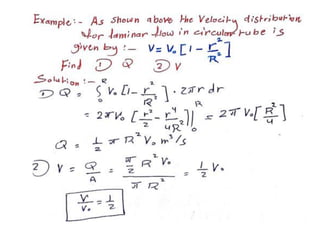 Example:- As shown above the Velocity distribution
for laminar flow in circular tube is
given by :- V = V₀ [1 - r²/R²]
Find ① Q ② V
Solution:-
① Q = ∫₀ᴿ V₀ [1 - r²/R²] · 2πr dr
= 2πV₀ [r²/2 - r⁴/4R²]|₀ᴿ = 2πV₀ [R²/4]
Q = 1/2 π R² V₀ m³/s
2) V = Q/A = (π/2 R² V₀)/(π R²) = 1/2 V₀
V/V₀ = 1/2